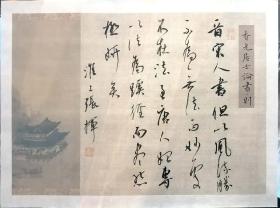 香光居士論書則
晉宋人書但以風流勝
不為無法而妙處
不在法至唐人始專
以法為蹊徑而盡態
極妍矣
淮上張揮